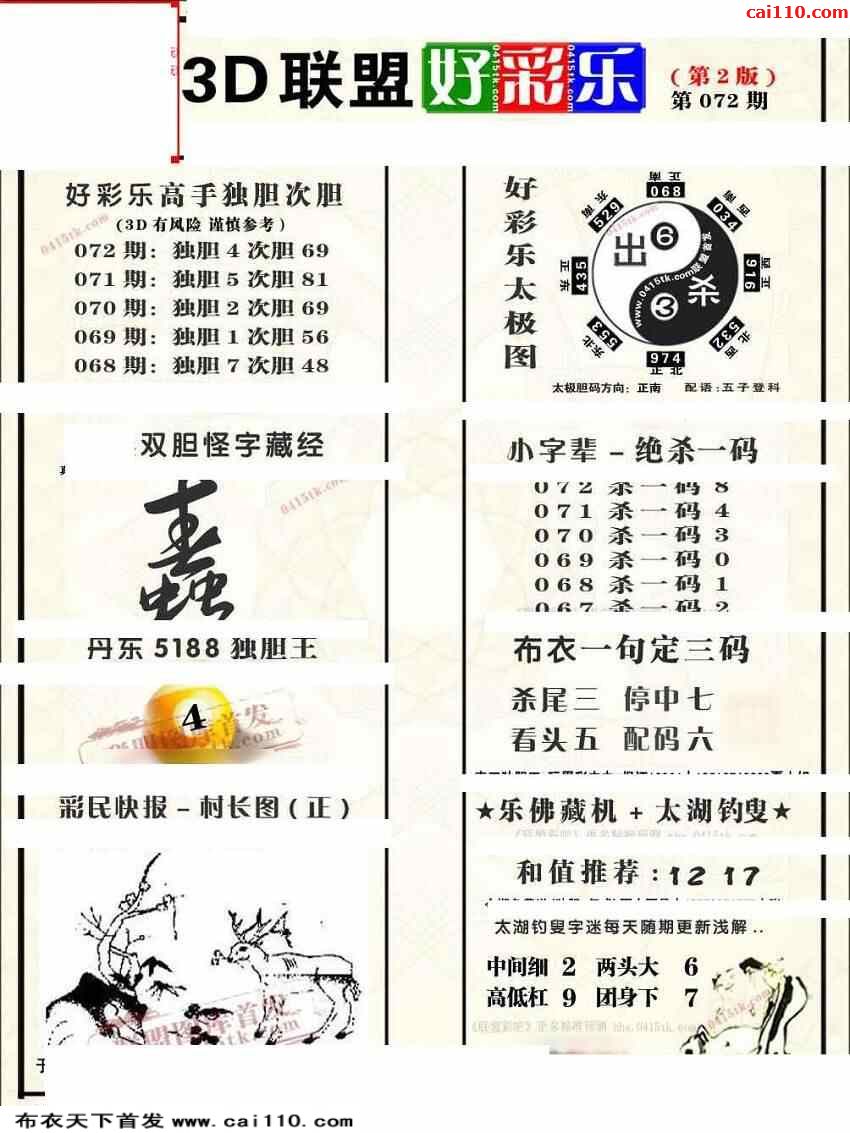 cai110.com
3D联盟 好彩乐
0415tk.com 0415tk.com 0415tk.com
(第2版)
第072期
好彩乐高手独胆次胆
(3D有风险 谨慎参考)
0415tk.com
072期: 独胆4次胆69
071期: 独胆5次胆81
070期: 独胆2次胆69
069期: 独胆1次胆56
068期: 独胆7次胆48
好彩乐太极图
正南 068
西南 034
正西 916
西北 532
正北 974
东北 553
正东 435
东南 529
出 6
杀 3
www.0415tk.com联盟首发
太极胆码方向: 正南 配语: 五子登科
双胆怪字藏经
0415tk.com
小字辈-绝杀一码
072杀一码8
071杀一码4
070杀一码3
069杀一码0
068杀一码1
067杀一码2
丹东5188独胆王
4
布衣一句定三码
杀尾三 停中七
看头五 配码六
彩民快报-村长图(正)
★乐佛藏机+太湖钓叟★
和值推荐:12 17
太湖钓叟字迷每天随期更新浅解..
中间细 2 两头大 6
高低杠 9 团身下 7
0415tk.com
布衣天下首发 www.cai110.com